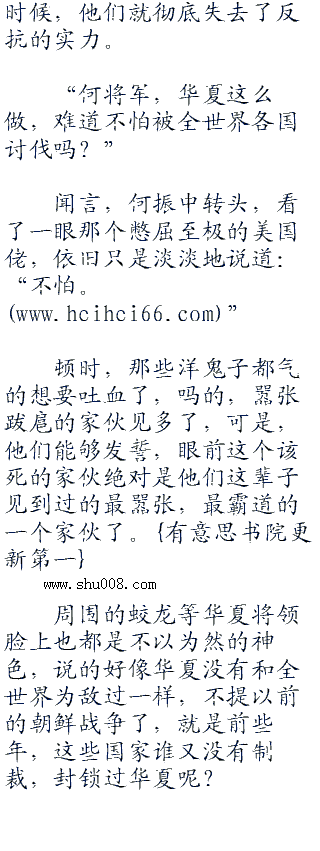 时候，他们就彻底失去了反
抗的实力。
“何将军，华夏这么
做，难道不怕被全世界各国
讨伐吗？”
闻言，何振中转头，看
了一眼那个憋屈至极的美国
佬，依旧只是淡淡地说道：
“不怕。
(www.hcihci66.com)”
顿时，那些洋鬼子都气
的想要吐血了，吗的，嚣张
跋扈的家伙见多了，可是，
他们能够发誓，眼前这个该
死的家伙绝对是他们这辈子
见到过的最嚣张，最霸道的
一个家伙了。{有意思书院更
新第一}
www.shu008.com
周围的蛟龙等华夏将领
脸上也都是不以为然的神
色，说的好像华夏没有和全
世界为敌过一样，不提以前
的朝鲜战争了，就是前些
年，这些国家谁又没有制
裁，封锁过华夏呢？